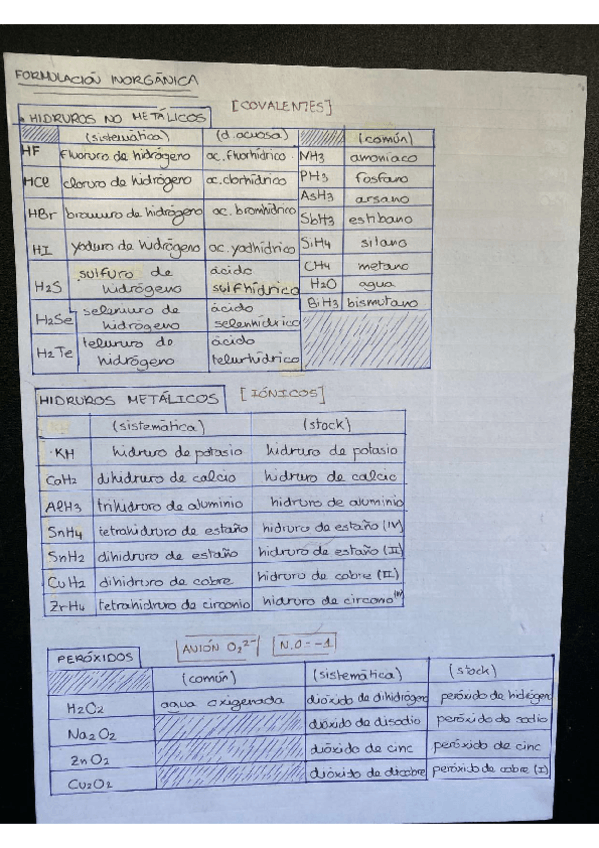 FORMULACIÓN INORGÁNICA
HIDRUROS NO METÁLICOS [COVALENTES]
(sistemática) (d. acuosa) (común)
HF fluoruro de hidrógeno ac. fluorhídrico NH3 amoniaco
HCl cloruro de hidrógeno ac. clorhídrico PH3 fosfano
AsH3 arsano
HBr bromuro de hidrógeno ac. bromhídrico SbH3 estibano
HI yoduro de hidrógeno ac. yodhídrico SiH4 silano
H2S sulfuro de hidrógeno ácido sulfhídrico CH4 metano
H2O agua
H2Se selenuro de hidrógeno ácido selenhídrico BiH3 bismutano
H2Te telururo de hidrógeno ácido telurhídrico
HIDRUROS METÁLICOS [IÓNICOS]
(sistemática) (stock)
KH hidruro de potasio hidruro de potasio
CaH2 dihidruro de calcio hidruro de calcio
AlH3 trihidruro de aluminio hidruro de aluminio
SnH4 tetrahidruro de estaño hidruro de estaño (IV)
SnH2 dihidruro de estaño hidruro de estaño (II)
CuH2 dihidruro de cobre hidruro de cobre (II)
ZrH4 tetrahidruro de circonio hidruro de circono (IV)
PERÓXIDOS ANIÓN O2 2- N.O = -1
(común) (sistemática) (stock)
H2O2 agua oxigenada dióxido de dihidrógeno peróxido de hidrógen
Na2O2 dióxido de disodio peróxido de sodio
ZnO2 dióxido de cinc peróxido de cinc
Cu2O2 dióxido de dicobre peróxido de cobre (I)